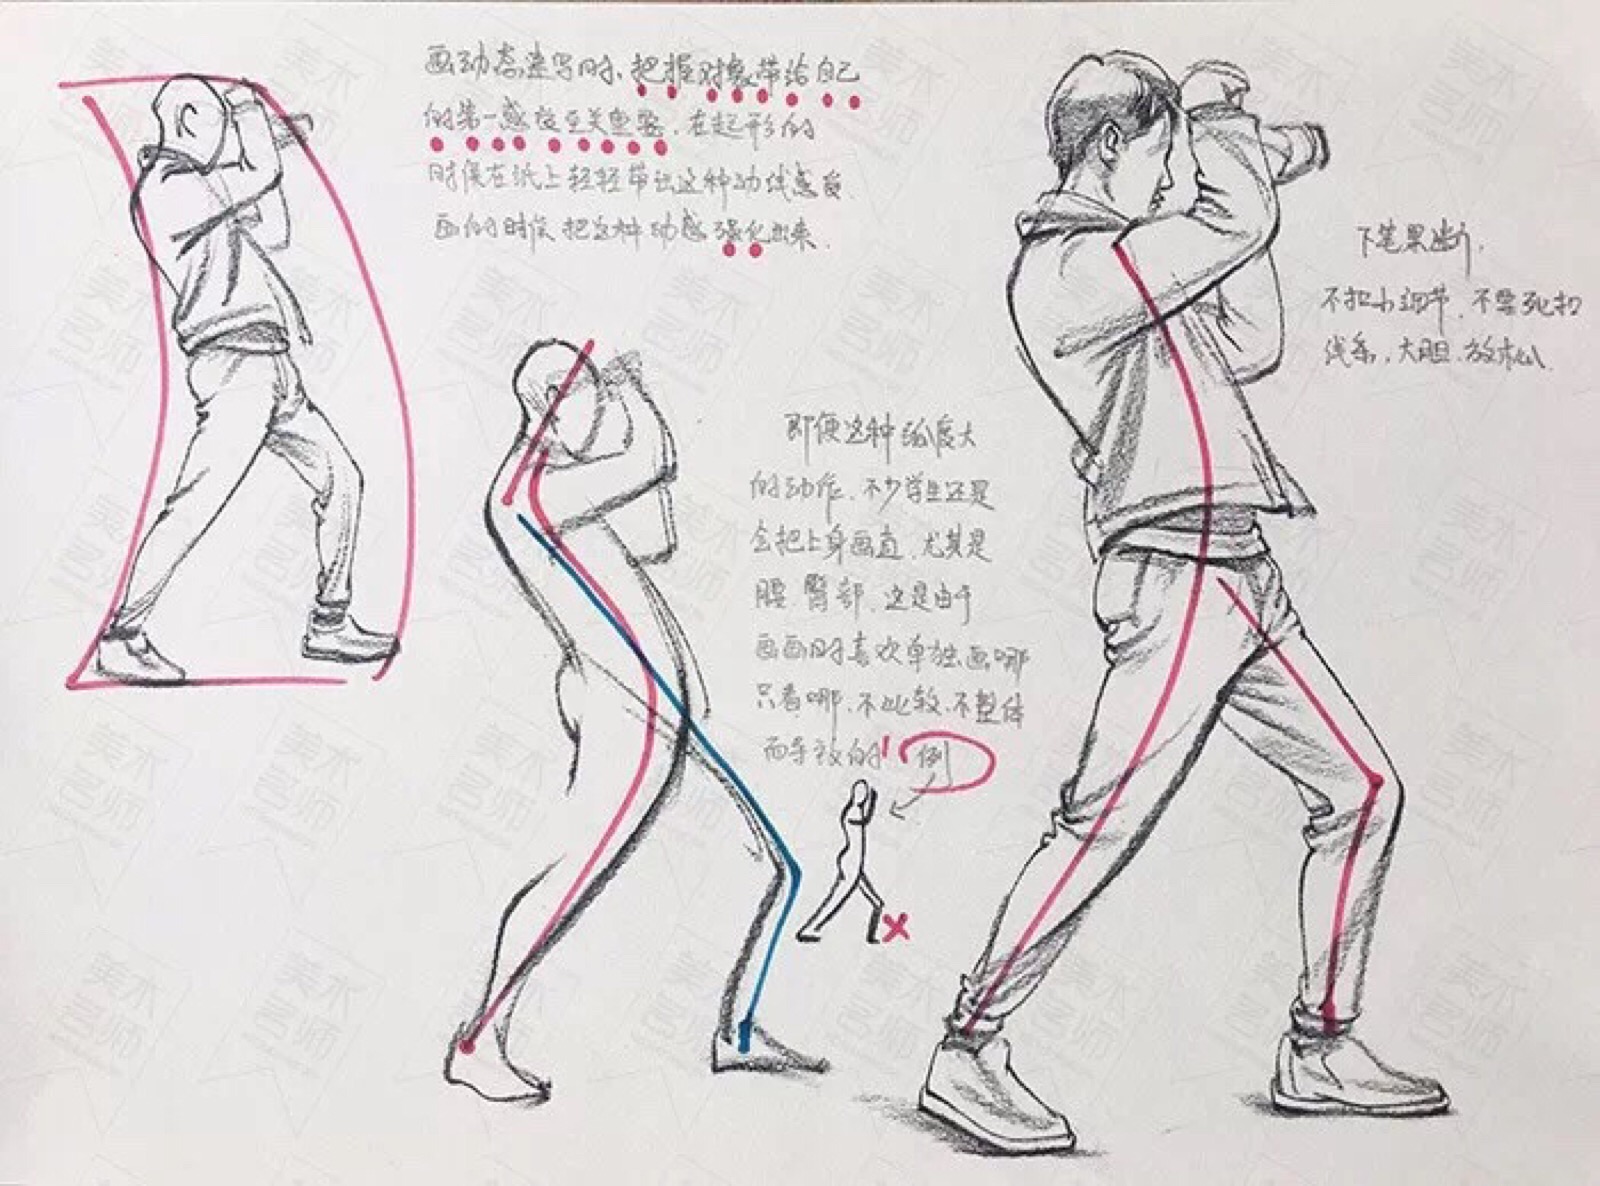 画动态速写时、把握对象带给自己
的第一感受至关重要、在起形的
时候在纸上轻轻带出这种动线感受
画的时候把这种动感强化出来.
下笔果断,
不扣小细节、不要死扣
线条,大胆、放松
即便这种弧度大
的动作、不少学生还是
会把上身画直、尤其是
腰、臀部、这是由于
画画时喜欢单独画哪
只看哪、不比较、不整体
而导致的'
例
美术名师